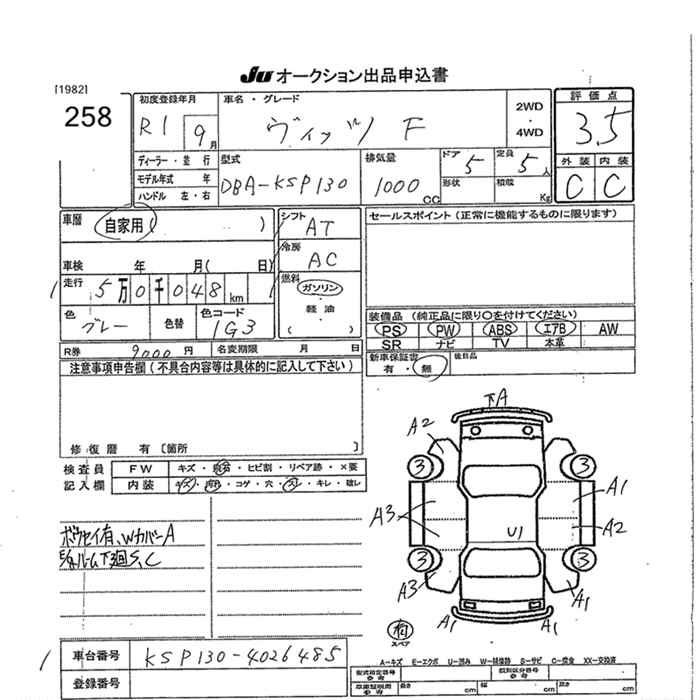 JU オークション出品申込書
[1982]
258
初度登録年月
R1 9月
車名・グレード
ヴィッツ F
2WD
・
4WD
評価点
3.5
ディーラー・並行
モデル年式 年
ハンドル 左・右
型式
DBA-KSP130
排気量
1000 CC
ドア 5
定員 5人
形状
積載 Kg
外装 内装
C C
車歴 自家用 ( )
シフト AT
セールスポイント (正常に機能するものに限ります)
車検 年 月( 日)
冷房 AC
走行 5万0千048 km
燃料 ガソリン・軽油・( )
色 グレー
色替
色コード 1G3
装備品 (純正品に限り○を付けてください)
PS PW ABS エアB AW
SR ナビ TV 本革
R券 9000円
名変期限 月 日
新車保証書 有・無
後日品
注意事項申告欄(不具合内容等は具体的に記入して下さい)
修復歴 有〔箇所 〕
検査員 FW キズ・ ・ヒビ割・リペア跡・×要
記入欄 内装 キズ・ ・コゲ・穴・ ・キレ・破レ
ボウセイ有、WカバーA
下廻S、C
下A
A2
3 3
A1
A3
A2
U1
3 3
A3
A1
A1 A1
スペア
車台番号 KSP130-4026485
登録番号
A-キズ E-エクボ U-凹み W-補修跡 S-サビ C-腐食 XX-交換済
型式指定番号 参考
類別区分番号 参考
車庫証明用 参考
長さ cm
幅 cm
高さ cm